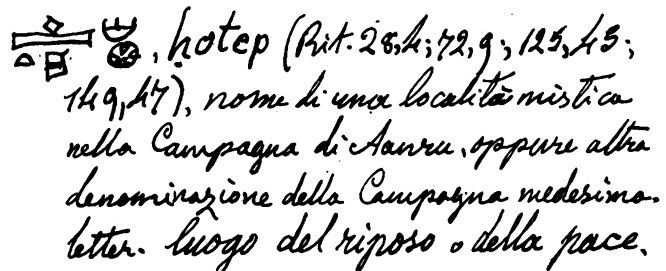 , ḥotep (Rit. 28,4; 72,9; 125,45;
149,47), nome di una località mistica
nella Campagna di Aanru, oppure altra
denominazione della Campagna medesima.
letter. luogo del riposo o della pace.